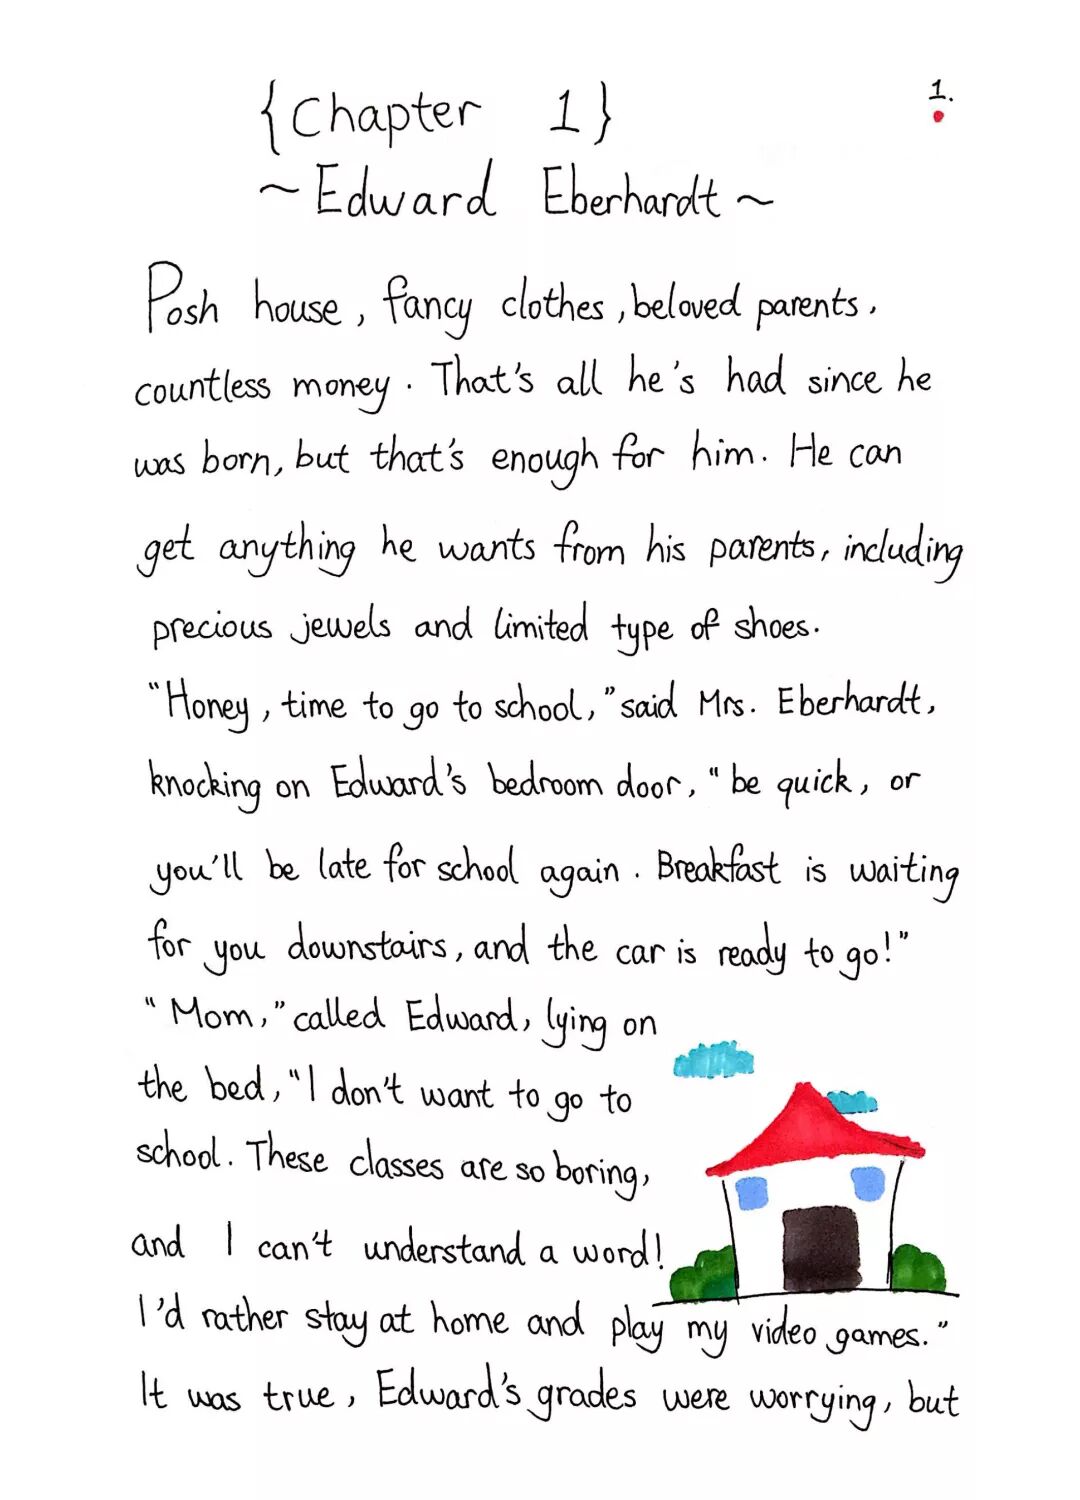 {Chapter 1}
1.
~Edward Eberhardt~
Posh house, fancy clothes, beloved parents,
countless money. That's all he's had since he
was born, but that's enough for him. He can
get anything he wants from his parents, including
precious jewels and limited type of shoes.
"Honey, time to go to school," said Mrs. Eberhardt,
knocking on Edward's bedroom door, "be quick, or
you'll be late for school again. Breakfast is waiting
for you downstairs, and the car is ready to go!"
"Mom," called Edward, lying on
the bed, "I don't want to go to
school. These classes are so boring,
and I can't understand a word!
I'd rather stay at home and play my video games."
It was true, Edward's grades were worrying, but